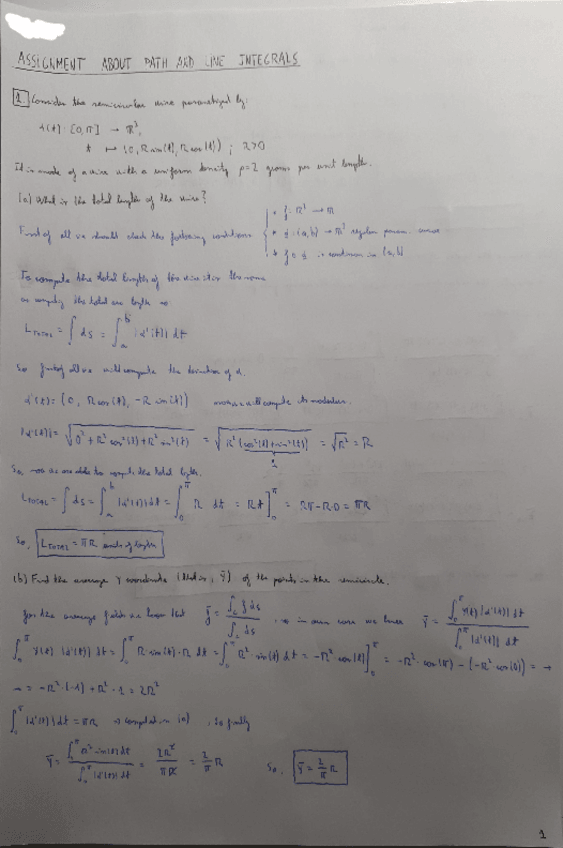 ASSIGNMENT ABOUT PATH AND LINE INTEGRALS
1 Consider the semicircular wire parametrized by:
α(t): [0,π] → ℝ³,
t ↦ (0, R sin(t), R cos(t)) ; R>0
It is made of a wire with a uniform density ρ=2 grams per unit length.
(a) What is the total length of the wire?
• f: ℝ³ → ℝ
First of all we should check the following conditions • α: (a,b) → ℝ³ regular param. curve
• f∘α is continuous in (a,b)
To compute the total length of the wire is the same
as computing the total arc length so
L_TOTAL = ∫ ds = ∫_a^b |α'(t)| dt
So first of all we will compute the derivative of α.
α'(t) = (0, R cos(t), -R sin(t)) now we will compute its modulus.
|α'(t)| = √(0² + R² cos²(t) + R² sin²(t)) = √(R² (cos²(t) + sin²(t))) = √R² = R
1
So, now we are able to compute the total length.
L_TOTAL = ∫ ds = ∫_a^b |α'(t)| dt = ∫_0^π R dt = Rt ]_0^π = Rπ - R·0 = πR
So, L_TOTAL = πR units of length
(b) Find the average Y coordinate (that is, ȳ) of the points in the semicircle.
for the average field we know that f̄ = ∫_C f ds / ∫_C ds , so in our case we have ȳ = ∫_0^π Y(t) |α'(t)| dt / ∫_0^π |α'(t)| dt
∫_0^π Y(t) |α'(t)| dt = ∫_0^π R·sin(t)·R dt = ∫_0^π R²·sin(t) dt = -R² cos(t) ]_0^π = -R²·cos(π) - (-R² cos(0)) = →
→ = -R²·(-1) + R²·1 = 2R²
∫_0^π |α'(t)| dt = πR → computed in (a) , so finally
ȳ = ∫_0^π R² sin(t) dt / ∫_0^π |α'(t)| dt = 2R² / πR = 2/π R So, ȳ = 2/π R
1